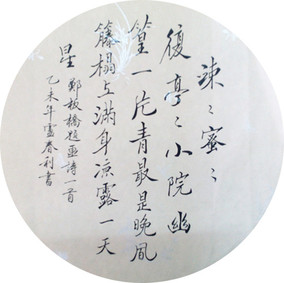 疎〻蜜〻
復亭〻小院幽
篁一片青最是晚風
籐榻上滿身凉露一天
星
鄭板橋題画詩一首
乙未年盧春利書